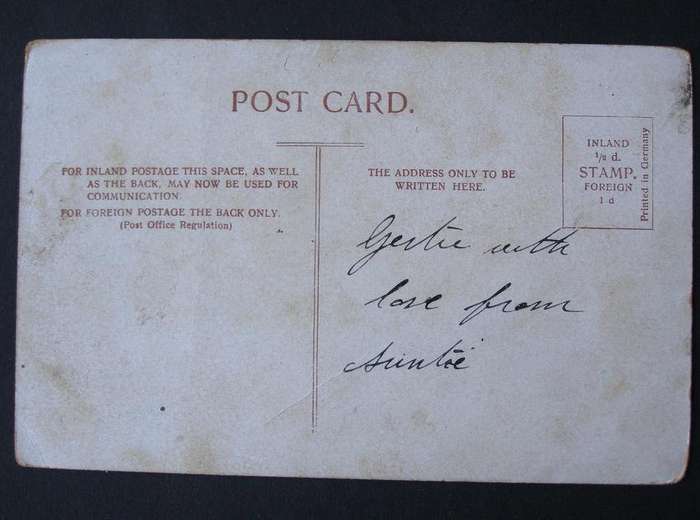 POST CARD.
FOR INLAND POSTAGE THIS SPACE, AS WELL
AS THE BACK, MAY NOW BE USED FOR
COMMUNICATION.
FOR FOREIGN POSTAGE THE BACK ONLY.
(Post Office Regulation)
THE ADDRESS ONLY TO BE
WRITTEN HERE.
INLAND
1/2 d.
STAMP.
FOREIGN
1 d
Printed in Germany
Gertie with
love from
Auntie